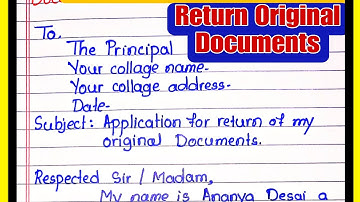 Return Original
Documents
To,
The Principal
Your collage name-
Your collage address-
Date-
Subject: Application for return of my
original Documents.
Respected Sir / Madam,
My name is Ananya Desai a